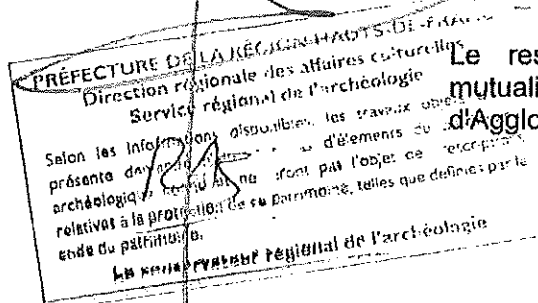 PRÉFECTURE DE LA RÉGION HAUTS-DE-FRANCE
Direction régionale des affaires culturelles
Service régional de l'archéologie
Selon les informations disponibles, les travaux objets
présente d'éléments du
archéologique ne feront pas l'objet de prescriptions
relatives à la protection de ce patrimoine, telles que définies par le
code du patrimoine.
Le conservateur régional de l'archéologie
Le res
mutuali
d'Agglo